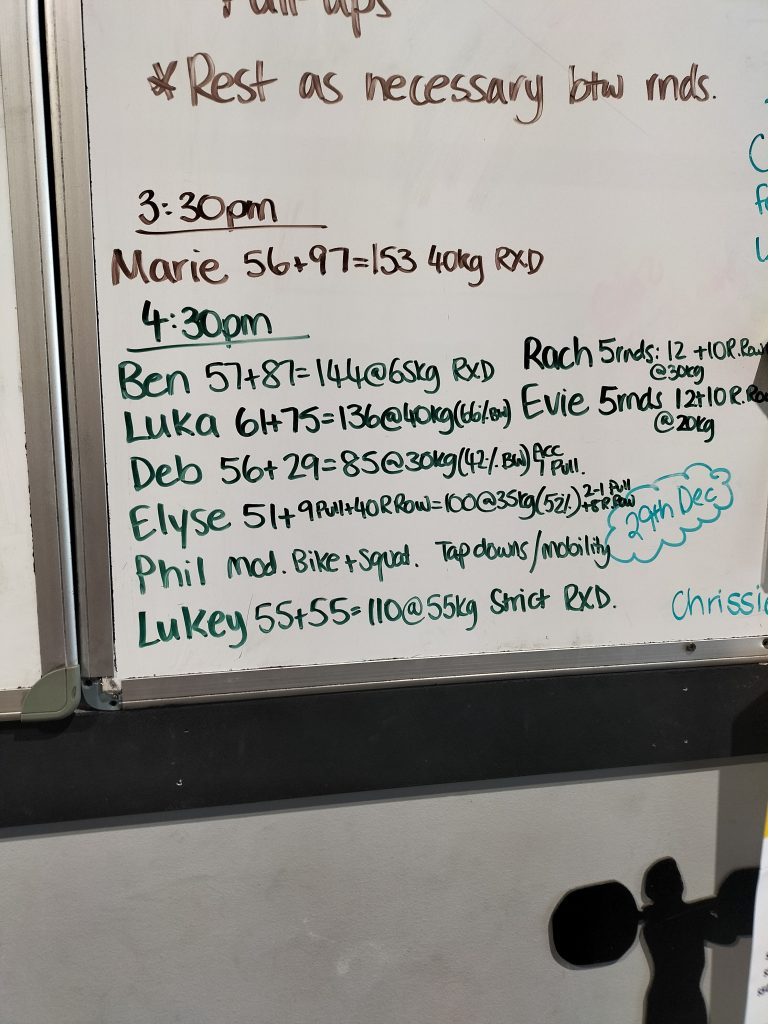 Pull-ups
*Rest as necessary btw rnds.
3:30pm
Marie 56+97=153 40kg RXD
4:30pm
Ben 57+87=144@65kg RXD
Luka 61+75=136@40kg(66%BW)
Deb 56+29=85@30kg(42%BW) Acc 7 Pull.
Elyse 51+9Pull+40R.Row=100@35kg(52%) 2-1 Pull
Phil Mod. Bike+Squat. Tap downs/mobility
Lukey 55+55=110@55kg Strict RXD.
Rach 5rnds: 12+10R.Row
@30kg
Evie 5rnds 12+10R.Row
@20kg
29th Dec